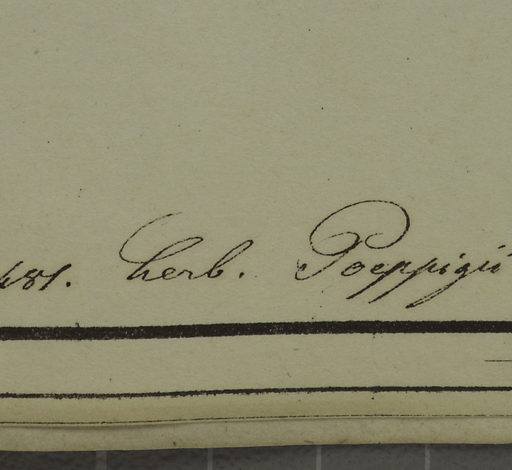 481. herb. Poeppigii